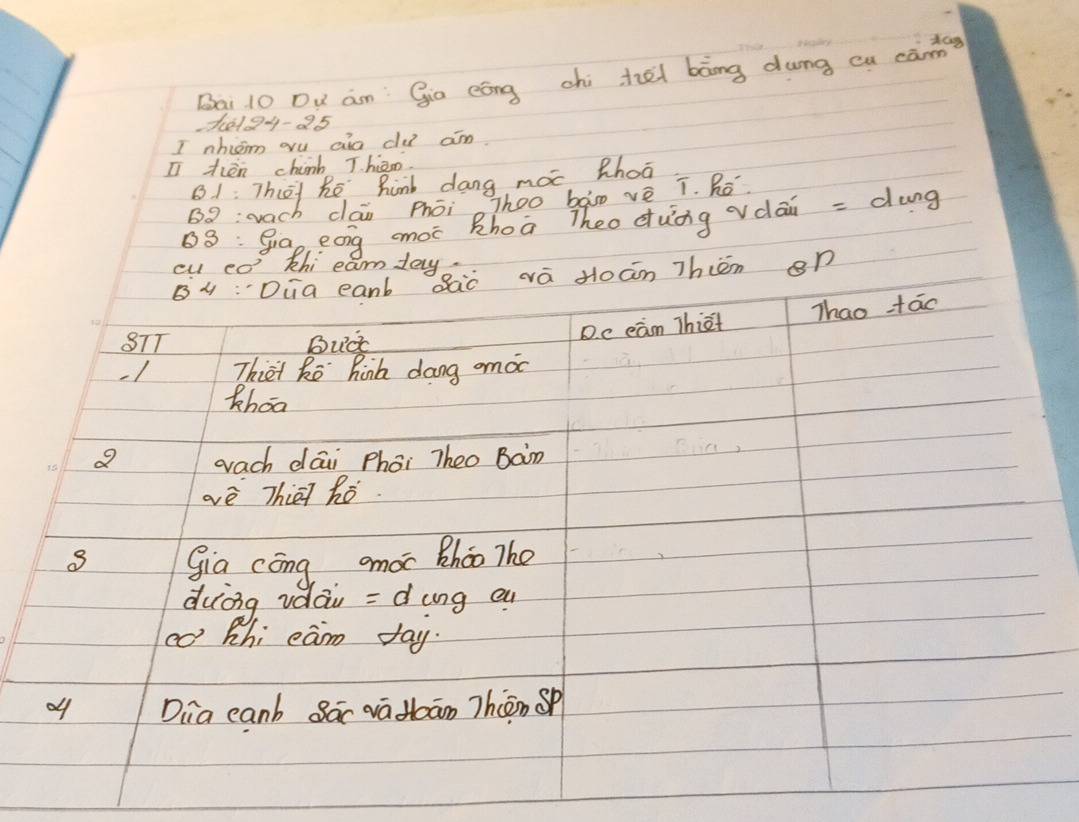 Bài 10 Dự án: Gia công chi tiết bằng dụng cụ cầm tay
tiết 24-25
I nhiệm vụ của dự án
II tiến chình Thiện.
B1: Thiết kế hình dạng móc khoá
B2: vạch dấu Phôi Theo bản vẽ T. kế.
B3: Gia công móc khoá Theo đường vdấu = dụng
cụ cơ khí cầm tay.
B4: Dũa cạnh sắc và Hoàn Thiện SP
STT Bước D.c cần Thiết Thao tác
1 Thiết kế hình dạng móc
khóa
2 vạch dấu Phôi Theo Bản
vẽ Thiết kế.
3 Gia công móc khóa The
đường vdấu = dụng cụ
cơ khí cầm tay.
4 Dũa cạnh sắc và Hoàn Thiện SP